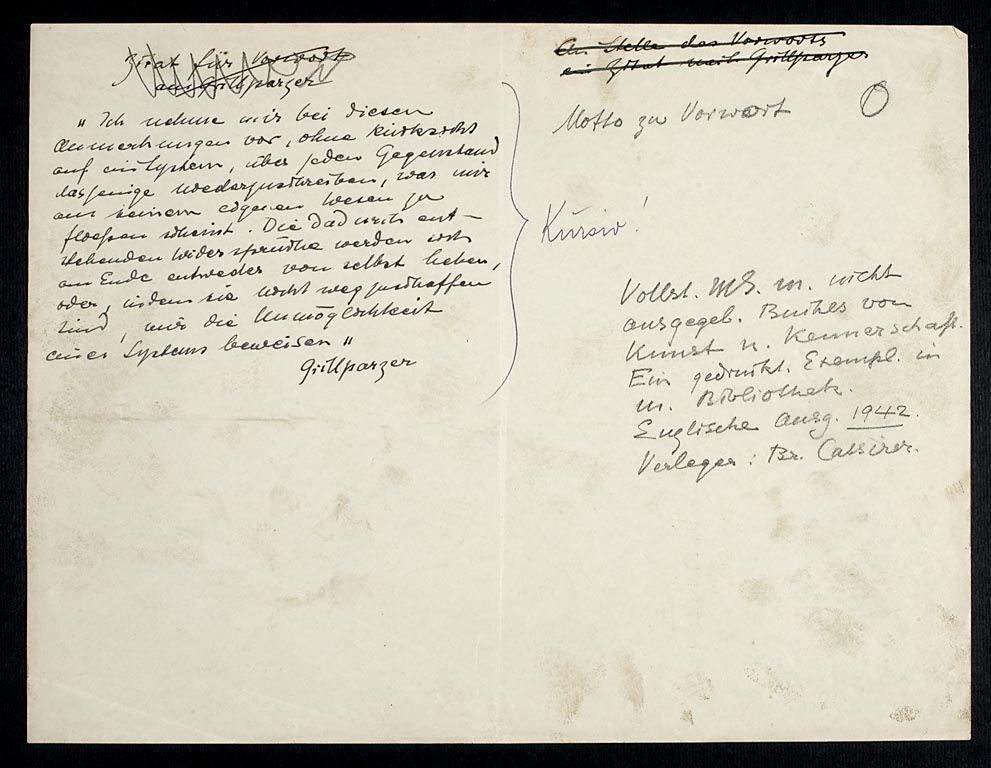 Zitat für Vorwort
aus Grillparzer
„Ich nehme mir bei diesen
Anmerkungen vor, ohne Rücksicht
auf ein System, über jeden Gegenstand
dasjenige niederzuschreiben, was mir
aus seinem eigenen Wesen zu
fliessen scheint. Die dadurch ent-
stehenden Widersprüche werden sich
am Ende entweder von selbst heben,
oder, indem sie nicht wegzuschaffen
sind, mir die Unmöglichkeit
eines Systems beweisen"
Grillparzer
An Stelle des Vorworts
ein Zitat nach Grillparzer
Motto zu Vorwort
O
Kursiv!
Vollst. MS. m. nicht
ausgegeb. Buches von
Kunst u. Kennerschaft.
Ein gedruckt. Exempl. in
m. Bibliothek.
Englische Ausg. 1942.
Verleger: Br. Cassirer.